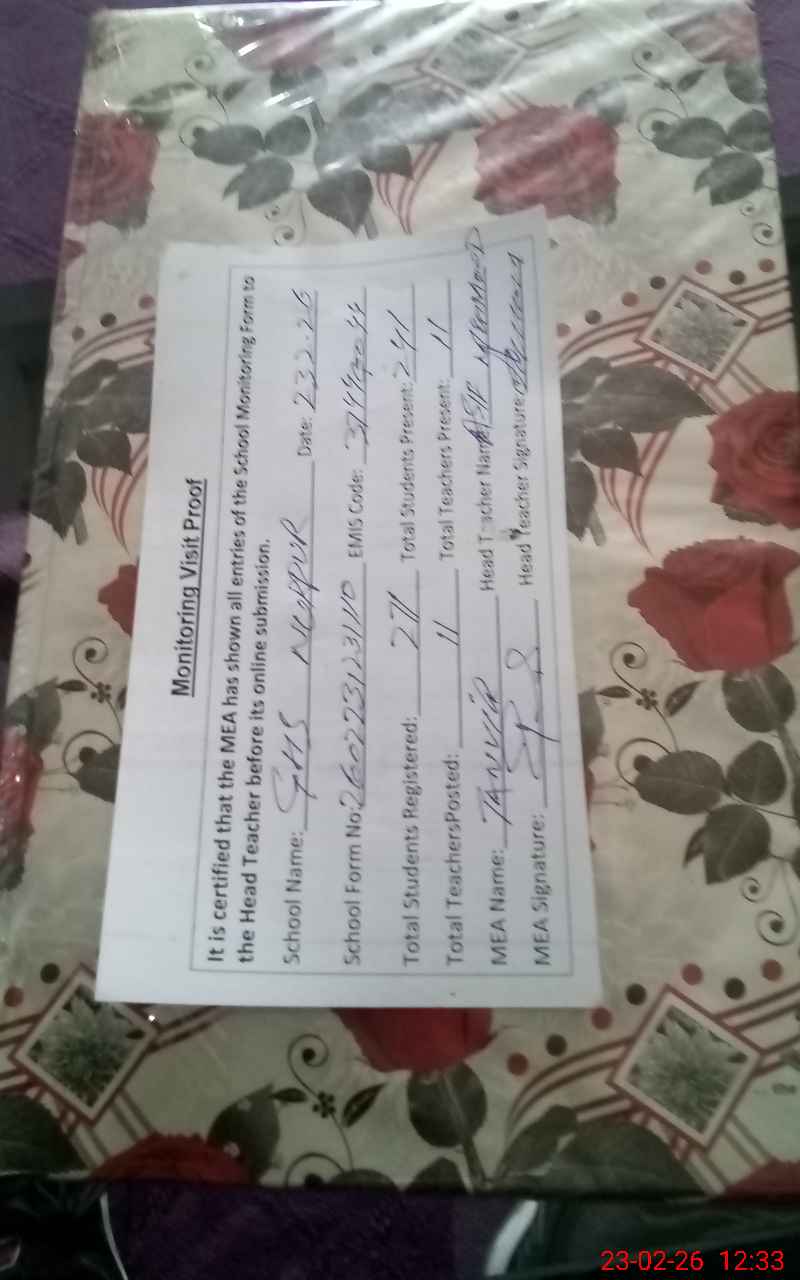 Monitoring Visit Proof
It is certified that the MEA has shown all entries of the School Monitoring Form to
the Head Teacher before its online submission.
School Name: GHS NURPUR Date: 23 2 - 26
School Form No: 260223123110 EMIS Code:
Total Students Registered: 271 Total Students Present: 241
Total TeachersPosted: 11 Total Teachers Present: 11
MEA Name: TANVIR Head Teacher Name: ASIF MEHMOOD
MEA Signature: Head Teacher Signature:
23-02-26 12:33